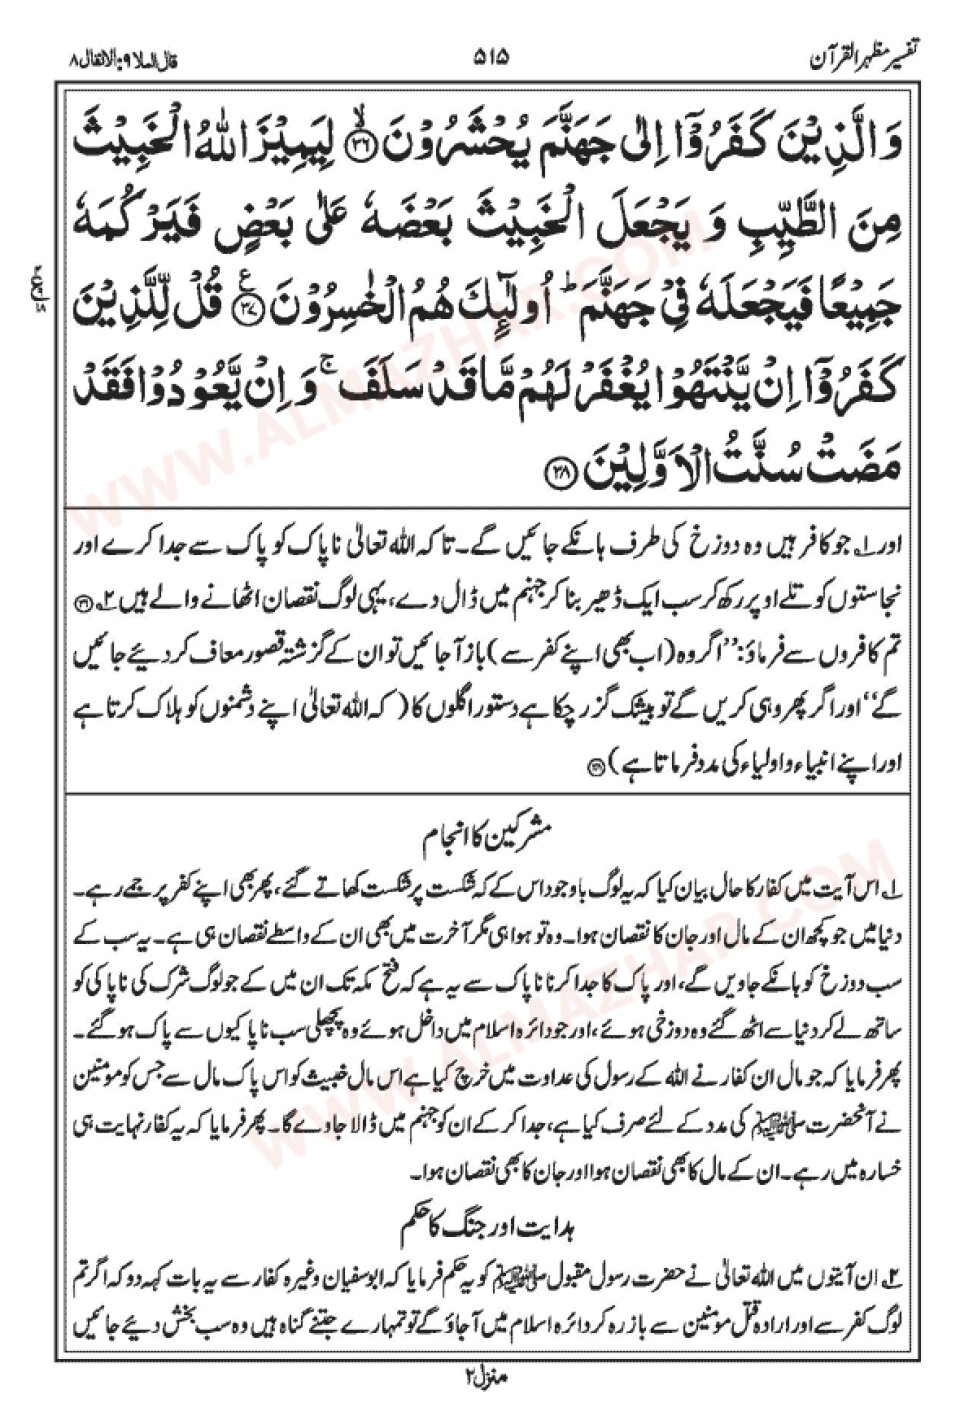 تفسیر مظہر القرآن ۵۱۵ قال الملا ۹: الانفال ۸
وَالَّذِيْنَ كَفَرُوْۤا اِلٰى جَهَنَّمَ يُحْشَرُوْنَ ۙ﴿۳۶﴾ لِيَمِيْزَ اللّٰهُ الْخَبِيْثَ
مِنَ الطَّيِّبِ وَ يَجْعَلَ الْخَبِيْثَ بَعْضَهٗ عَلٰى بَعْضٍ فَيَرْكُمَهٗ
جَمِيْعًا فَيَجْعَلَهٗ فِيْ جَهَنَّمَ ؕ اُولٰٓئِكَ هُمُ الْخٰسِرُوْنَ ﴿۳۷﴾ ع قُلْ لِّلَّذِيْنَ
كَفَرُوْۤا اِنْ يَّنْتَهُوْا يُغْفَرْ لَهُمْ مَّا قَدْ سَلَفَ ۚ وَ اِنْ يَّعُوْدُوْا فَقَدْ
مَضَتْ سُنَّتُ الْاَوَّلِيْنَ ﴿۳۸﴾
اور ۱؎ جو کافر ہیں وہ دوزخ کی طرف ہانکے جائیں گے۔ تاکہ اللہ تعالیٰ ناپاک کو پاک سے جدا کرے اور
نجاستوں کو تلے اوپر رکھ کر سب ایک ڈھیر بنا کر جہنم میں ڈال دے، یہی لوگ نقصان اٹھانے والے ہیں ۲؎
تم کافروں سے فرماؤ: ’’اگر وہ (اب بھی اپنے کفر سے) باز آ جائیں تو ان کے گزشتہ قصور معاف کر دیئے جائیں
گے‘‘ اور اگر پھر وہی کریں گے تو بیشک گزر چکا ہے دستور اگلوں کا (کہ اللہ تعالیٰ اپنے دشمنوں کو ہلاک کرتا ہے
اور اپنے انبیاء و اولیاء کی مدد فرماتا ہے)
مشرکین کا انجام
۱؎ اس آیت میں کفار کا حال بیان کیا کہ یہ لوگ باوجود اس کے کہ شکست پر شکست کھاتے گئے، پھر بھی اپنے کفر پر جمے رہے۔
دنیا میں جو کچھ ان کے مال اور جان کا نقصان ہوا۔ وہ تو ہوا ہی مگر آخرت میں بھی ان کے واسطے نقصان ہی ہے۔ یہ سب کے
سب دوزخ کو ہانکے جاویں گے، اور پاک کا جدا کرنا ناپاک سے یہ ہے کہ فتح مکہ تک ان میں کے جو لوگ شرک کی ناپاکی کو
ساتھ لے کر دنیا سے اٹھ گئے وہ دوزخی ہوئے، اور جو دائرہ اسلام میں داخل ہوئے وہ پچھلی سب ناپاکیوں سے پاک ہو گئے۔
پھر فرمایا کہ جو مال ان کفار نے اللہ کے رسول کی عداوت میں خرچ کیا ہے اس مال خبیث کو اس پاک مال سے جس کو مومنین
نے آنحضرت ﷺ کی مدد کے لئے صرف کیا ہے، جدا کر کے ان کو جہنم میں ڈالا جاوے گا۔ پھر فرمایا کہ یہ کفار نہایت ہی
خسارہ میں رہے۔ ان کے مال کا بھی نقصان ہوا اور جان کا بھی نقصان ہوا۔
ہدایت اور جنگ کا حکم
۲؎ ان آیتوں میں اللہ تعالیٰ نے حضرت رسول مقبول ﷺ کو یہ حکم فرمایا کہ ابوسفیان وغیرہ کفار سے یہ بات کہہ دو کہ اگر تم
لوگ کفر سے اور ارادہ قتل مومنین سے باز رہ کر دائرہ اسلام میں آ جاؤ گے تو تمہارے جتنے گناہ ہیں وہ سب بخش دیئے جائیں
منزل ۲
WWW.ALMAZHAR.COM
WWW.ALMAZHAR.COM